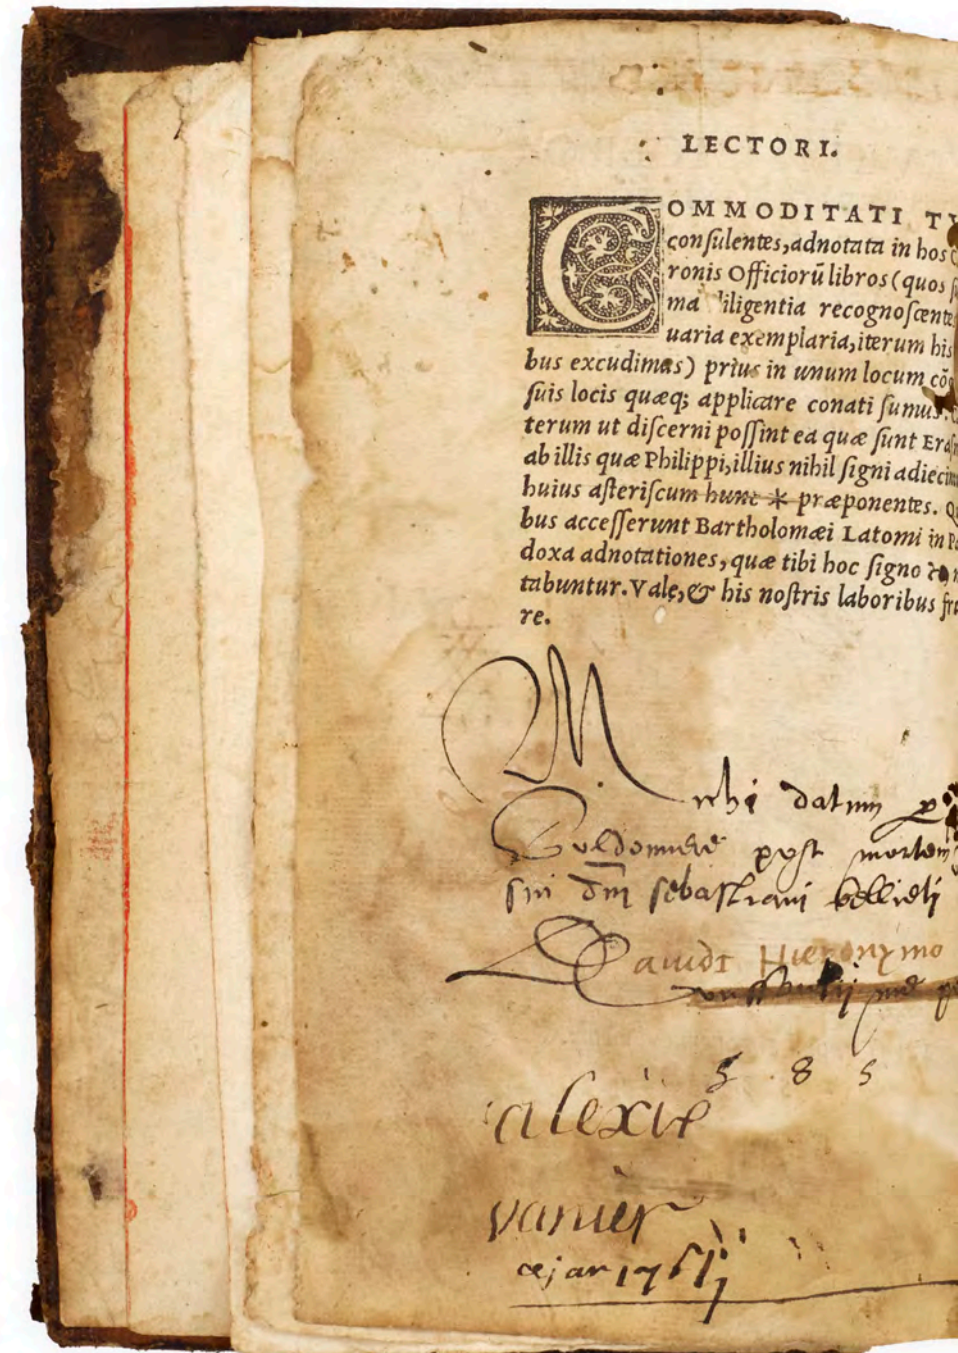 LECTORI.
COMMODITATI TV
conſulentes, adnotata in hos C
ronis Officiorũ libros (quos ſ
ma diligentia recognoſcente
uaria exemplaria, iterum his
bus excudimus) prius in unum locum cõ
ſuis locis quæq; applicare conati ſumus.
terum ut diſcerni poſſint ea quæ ſunt Eraſ
ab illis quæ Philippi, illius nihil ſigni adieci
huius aſteriſcum hunc * præponentes. Q
bus acceſſerunt Bartholomæi Latomi in Pa
doxa adnotationes, quæ tibi hoc ſigno n
tabuntur. Vale, & his noſtris laboribus fr
re.
Mihi datum p
post mortem
sui dm sebastiani
Dauidi Hieronymo
5 8 5
alexie
vanier